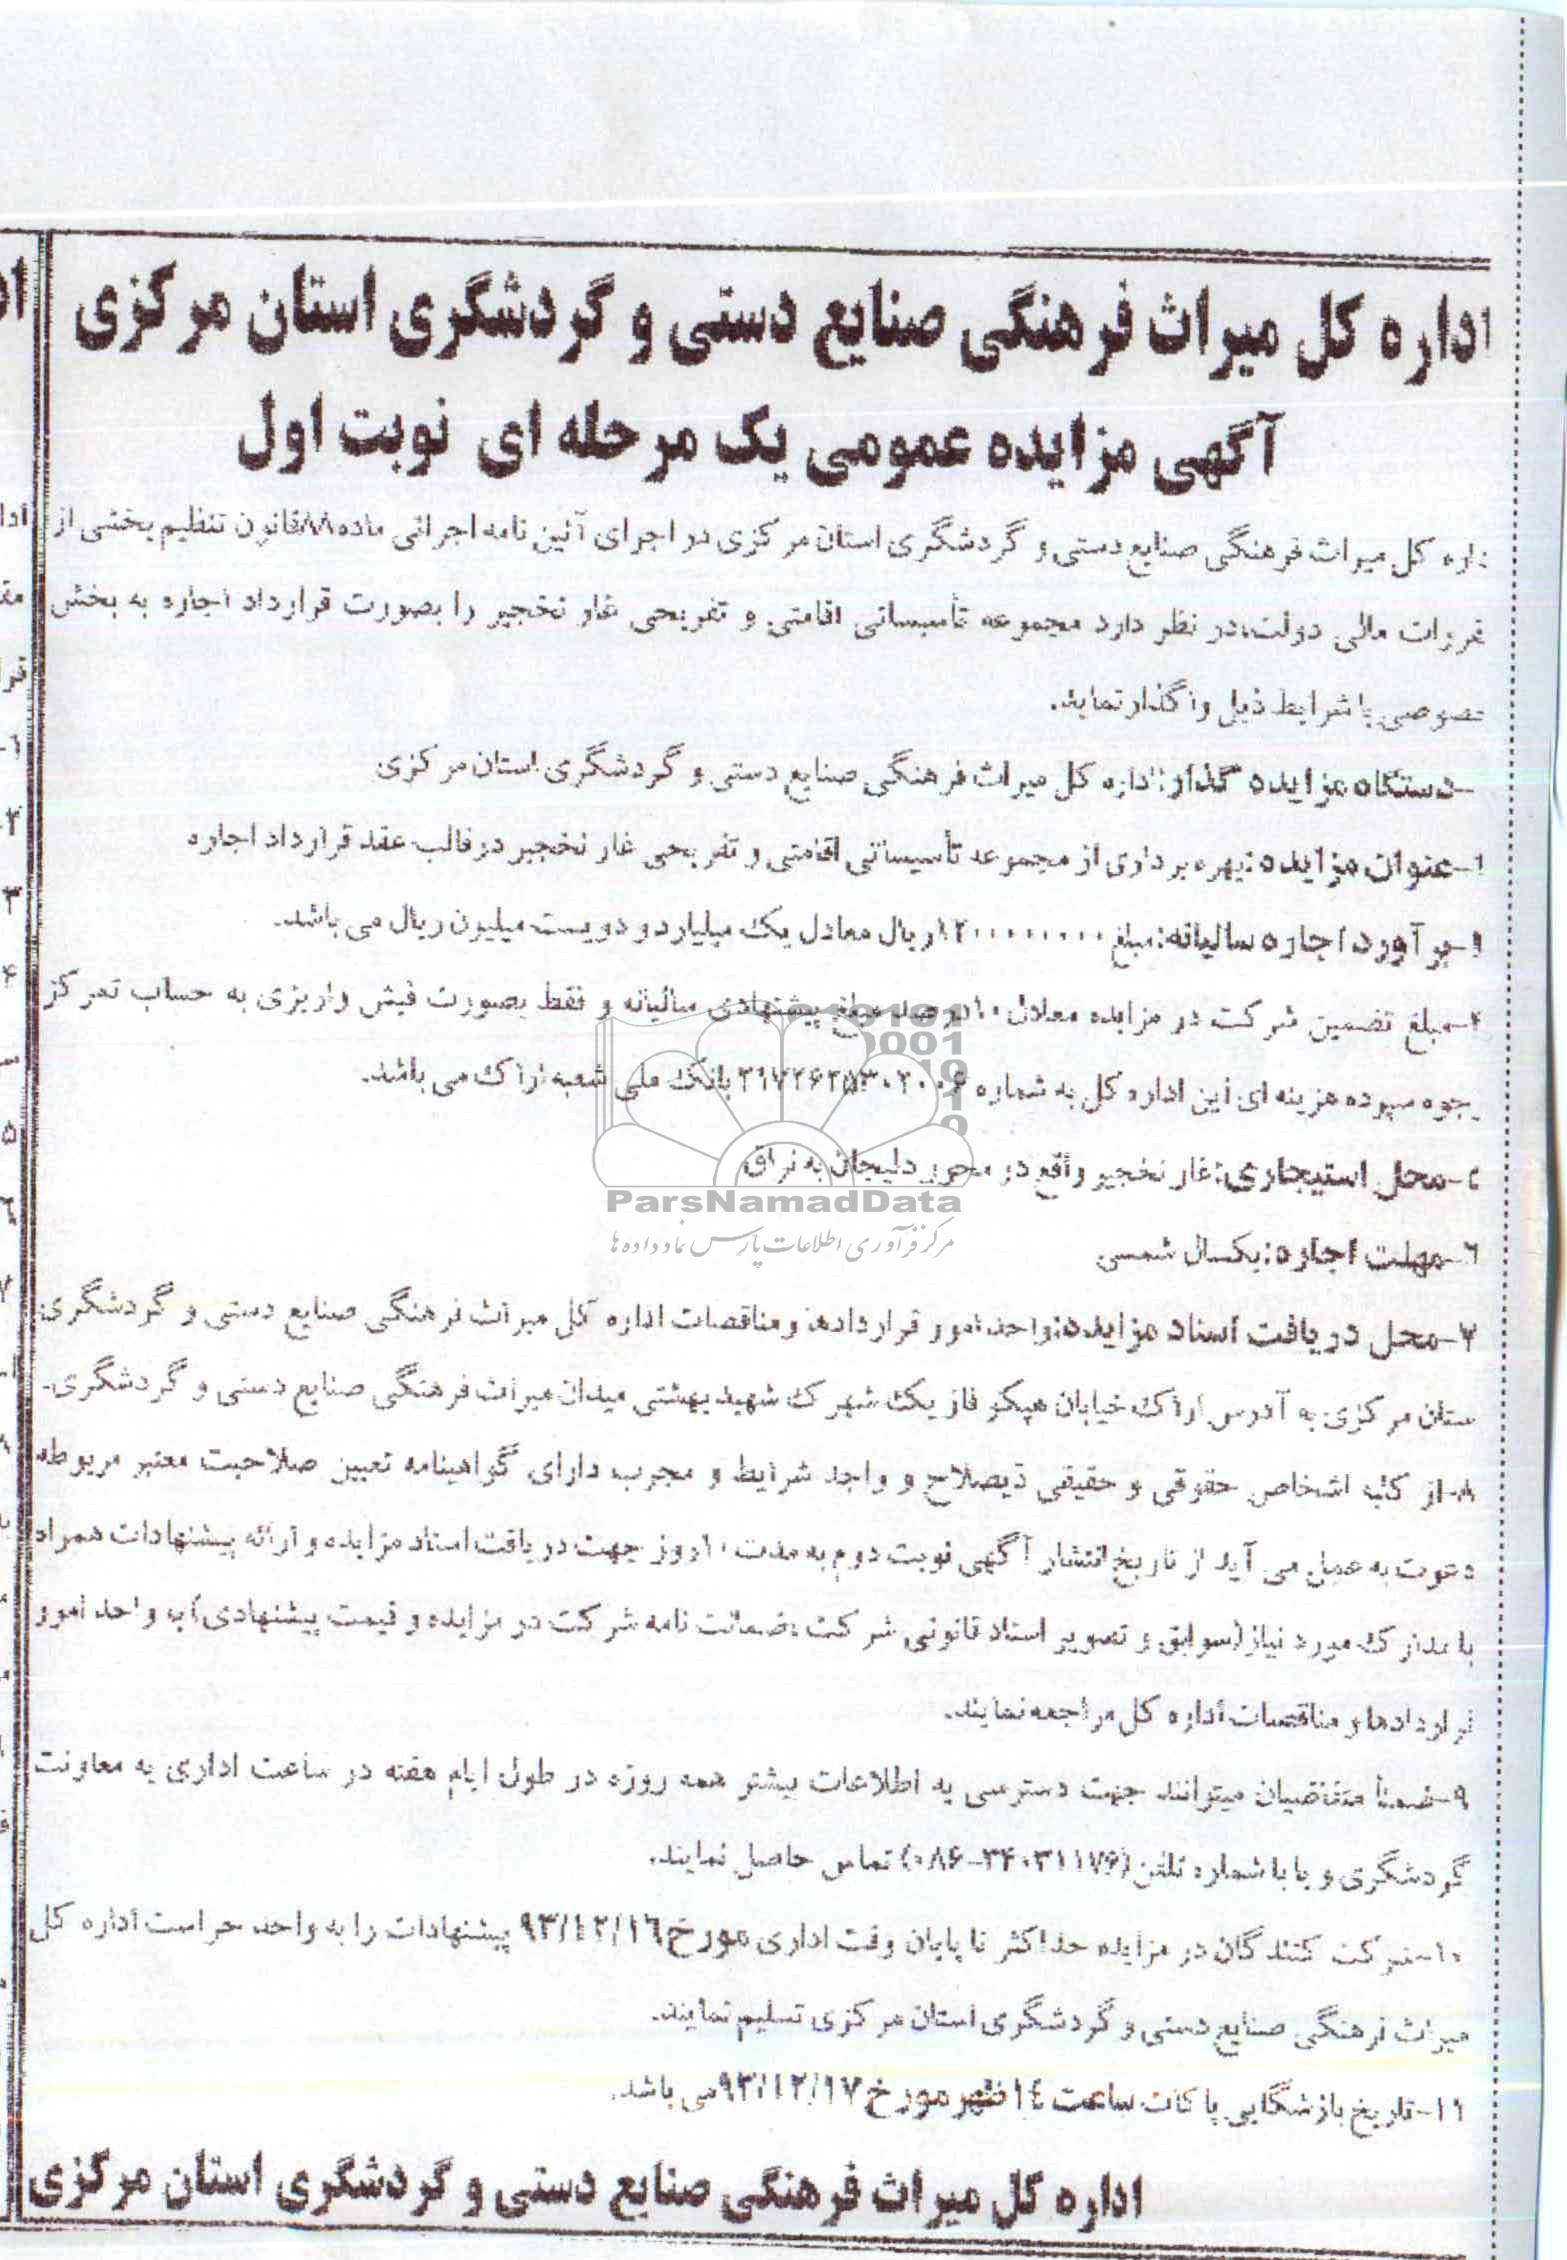 اداره کل میراث فرهنگی صنایع دستی و گردشگری استان مرکزی
آگهی مزایده عمومی یک مرحله ای نوبت اول
داره کل میراث فرهنگی صنایع دستی و گردشگری استان مرکزی در اجرای آئین نامه اجرائی ماده ۸۸ قانون تنظیم بخشی از
قررات مالی دولت، در نظر دارد مجموعه تأسیساتی اقامتی و تفریحی غار نخجیر را بصورت قرارداد اجاره به بخش
خصوصی با شرایط ذیل واگذار نماید.
-دستگاه مزایده گذار: اداره کل میراث فرهنگی صنایع دستی و گردشگری استان مرکزی
-عنوان مزایده: بهره برداری از مجموعه تأسیساتی اقامتی و تفریحی غار نخجیر در قالب عقد قرارداد اجاره
-برآورد اجاره سالیانه: مبلغ ۱۲۰۰۰۰۰۰۰۰ ریال معادل یک میلیارد و دویست میلیون ریال می باشد.
-مبلغ تضمین شرکت در مزایده معادل ۱۰ درصد مبلغ پیشنهادی سالیانه و فقط بصورت فیش واریزی به حساب تمرکز
وجوه سپرده هزینه ای این اداره کل به شماره ۲۱۷۲۶۲۵۳۰۲۰۰۶ بانک ملی شعبه اراک می باشد.
-محل استیجاری: غار نخجیر واقع در محور دلیجان به نراق
۶-مهلت اجاره: یکسال شمسی
۷-محل دریافت اسناد مزایده: واحد امور قراردادها و مناقصات اداره کل میراث فرهنگی صنایع دستی و گردشگری
ستان مرکزی به آدرس اراک خیابان هپکو فاز یک شهرک شهید بهشتی میدان میراث فرهنگی صنایع دستی و گردشگری.
۸-از کلیه اشخاص حقوقی و حقیقی ذیصلاح و واجد شرایط و مجرب دارای گواهینامه تعیین صلاحیت معتبر مربوطه
دعوت به عمل می آید از تاریخ انتشار آگهی نوبت دوم به مدت ۱۰ روز جهت دریافت اسناد مزایده و ارائه پیشنهادات همراه
با مدارک مورد نیاز (سوابق و تصویر اسناد قانونی شرکت، ضمانت نامه شرکت در مزایده و قیمت پیشنهادی) به واحد امور
قراردادها و مناقصات اداره کل مراجعه نمایند.
۹-ضمناً متقاضیان میتوانند جهت دسترسی به اطلاعات بیشتر همه روزه در طول ایام هفته در ساعت اداری به معاونت
گردشگری و یا با شماره تلفن (۳۴۰۳۱۱۷۶-۰۸۶) تماس حاصل نمایند.
۱۰-شرکت کنندگان در مزایده حداکثر تا پایان وقت اداری مورخ ۹۳/۱۲/۱۶ پیشنهادات را به واحد حراست اداره کل
میراث فرهنگی صنایع دستی و گردشگری استان مرکزی تسلیم نمایند.
۱۱-تاریخ بازشگایی پاکات ساعت ۱۴ ظهر مورخ ۹۳/۱۲/۱۷ می باشد.
اداره کل میراث فرهنگی صنایع دستی و گردشگری استان مرکزی
ParsNamadData
مرکز فرآوری اطلاعات پارس نماد داده ها